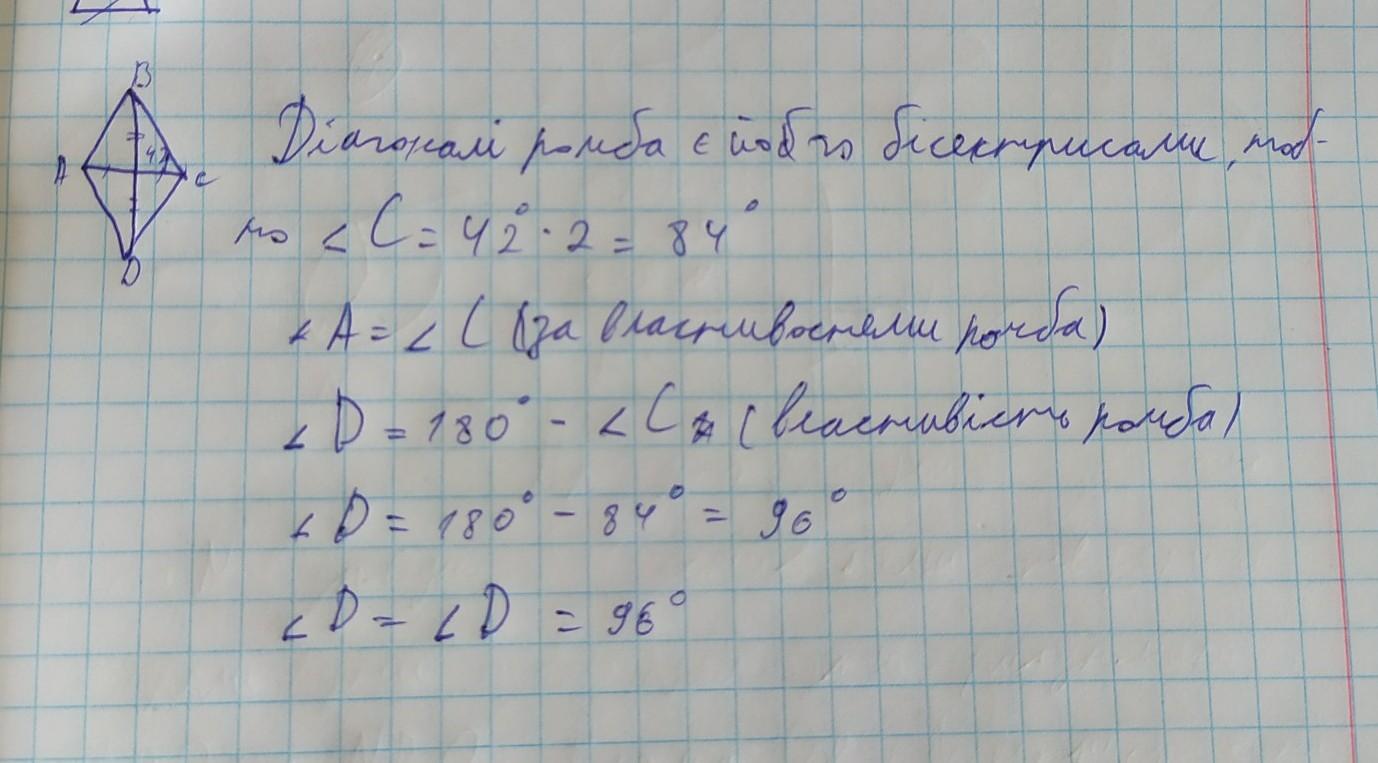 B
A
42
C
D
Діагоналі ромба є його бісектрисами, тоб-
то ∠C = 42° · 2 = 84°
∠A = ∠C (за властивостями ромба)
∠D = 180° - ∠C (властивість ромба)
∠D = 180° - 84° = 96°
∠D = ∠D = 96°